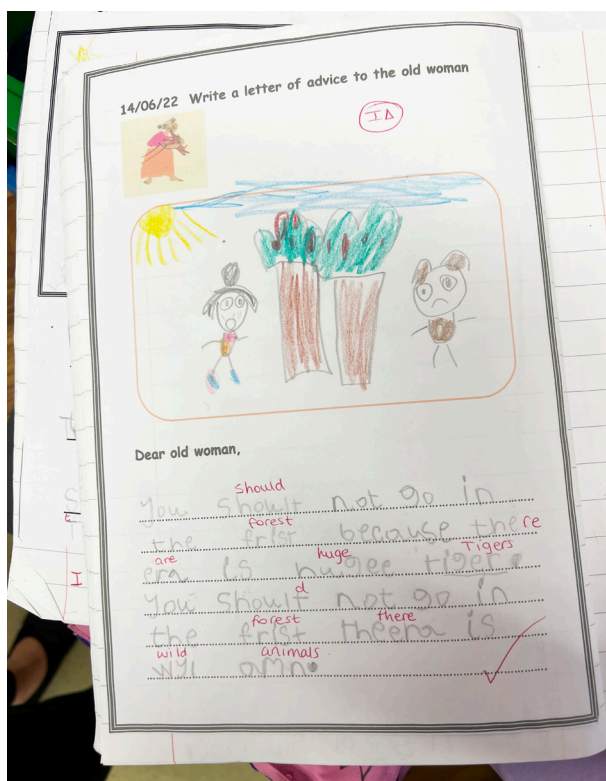 14/06/22 Write a letter of advice to the old woman
IA
Dear old woman,
should
You shoult not go in
forest
the frist because there
are huge Tigers
era is hugee tiger.
d
You shoult not go in
forest there
the frist theera is
wild animals.
wyl amn.
I